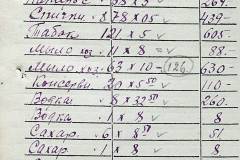 Спички. 88 x 05 439-
Табак 121 x 5 605.
Мыло хоз. 11 x 8 88.-
Мыло хоз. 63 x 10 - (126) 630-
Консервы 20 x 5 50 110-
Водка 8 x 32 50 260.
Водка 1 x 8 8
Сахар. 6 x 8 50 51
Сахар. 1 x 8 8